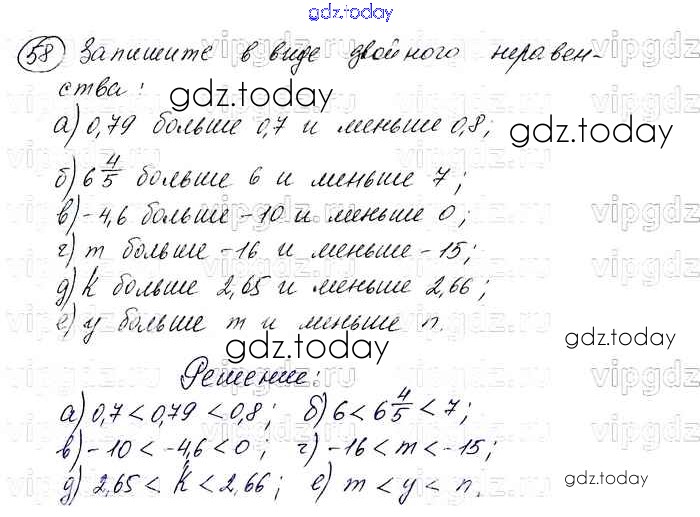 gdz.today
58 Запишите в виде двойного неравен-
ства:
gdz.today
а) 0,79 больше 0,7 и меньше 0,8;
gdz.today
б) 6 4/5 больше 6 и меньше 7;
в) -4,6 больше -10 и меньше 0;
г) m больше -16 и меньше -15;
д) k больше 2,65 и меньше 2,66;
е) y больше m и меньше n.
gdz.today
gdz.today
Решение:
а) 0,7 < 0,79 < 0,8; б) 6 < 6 4/5 < 7;
в) -10 < -4,6 < 0; г) -16 < m < -15;
д) 2,65 < k < 2,66; е) m < y < n.
gdz.today